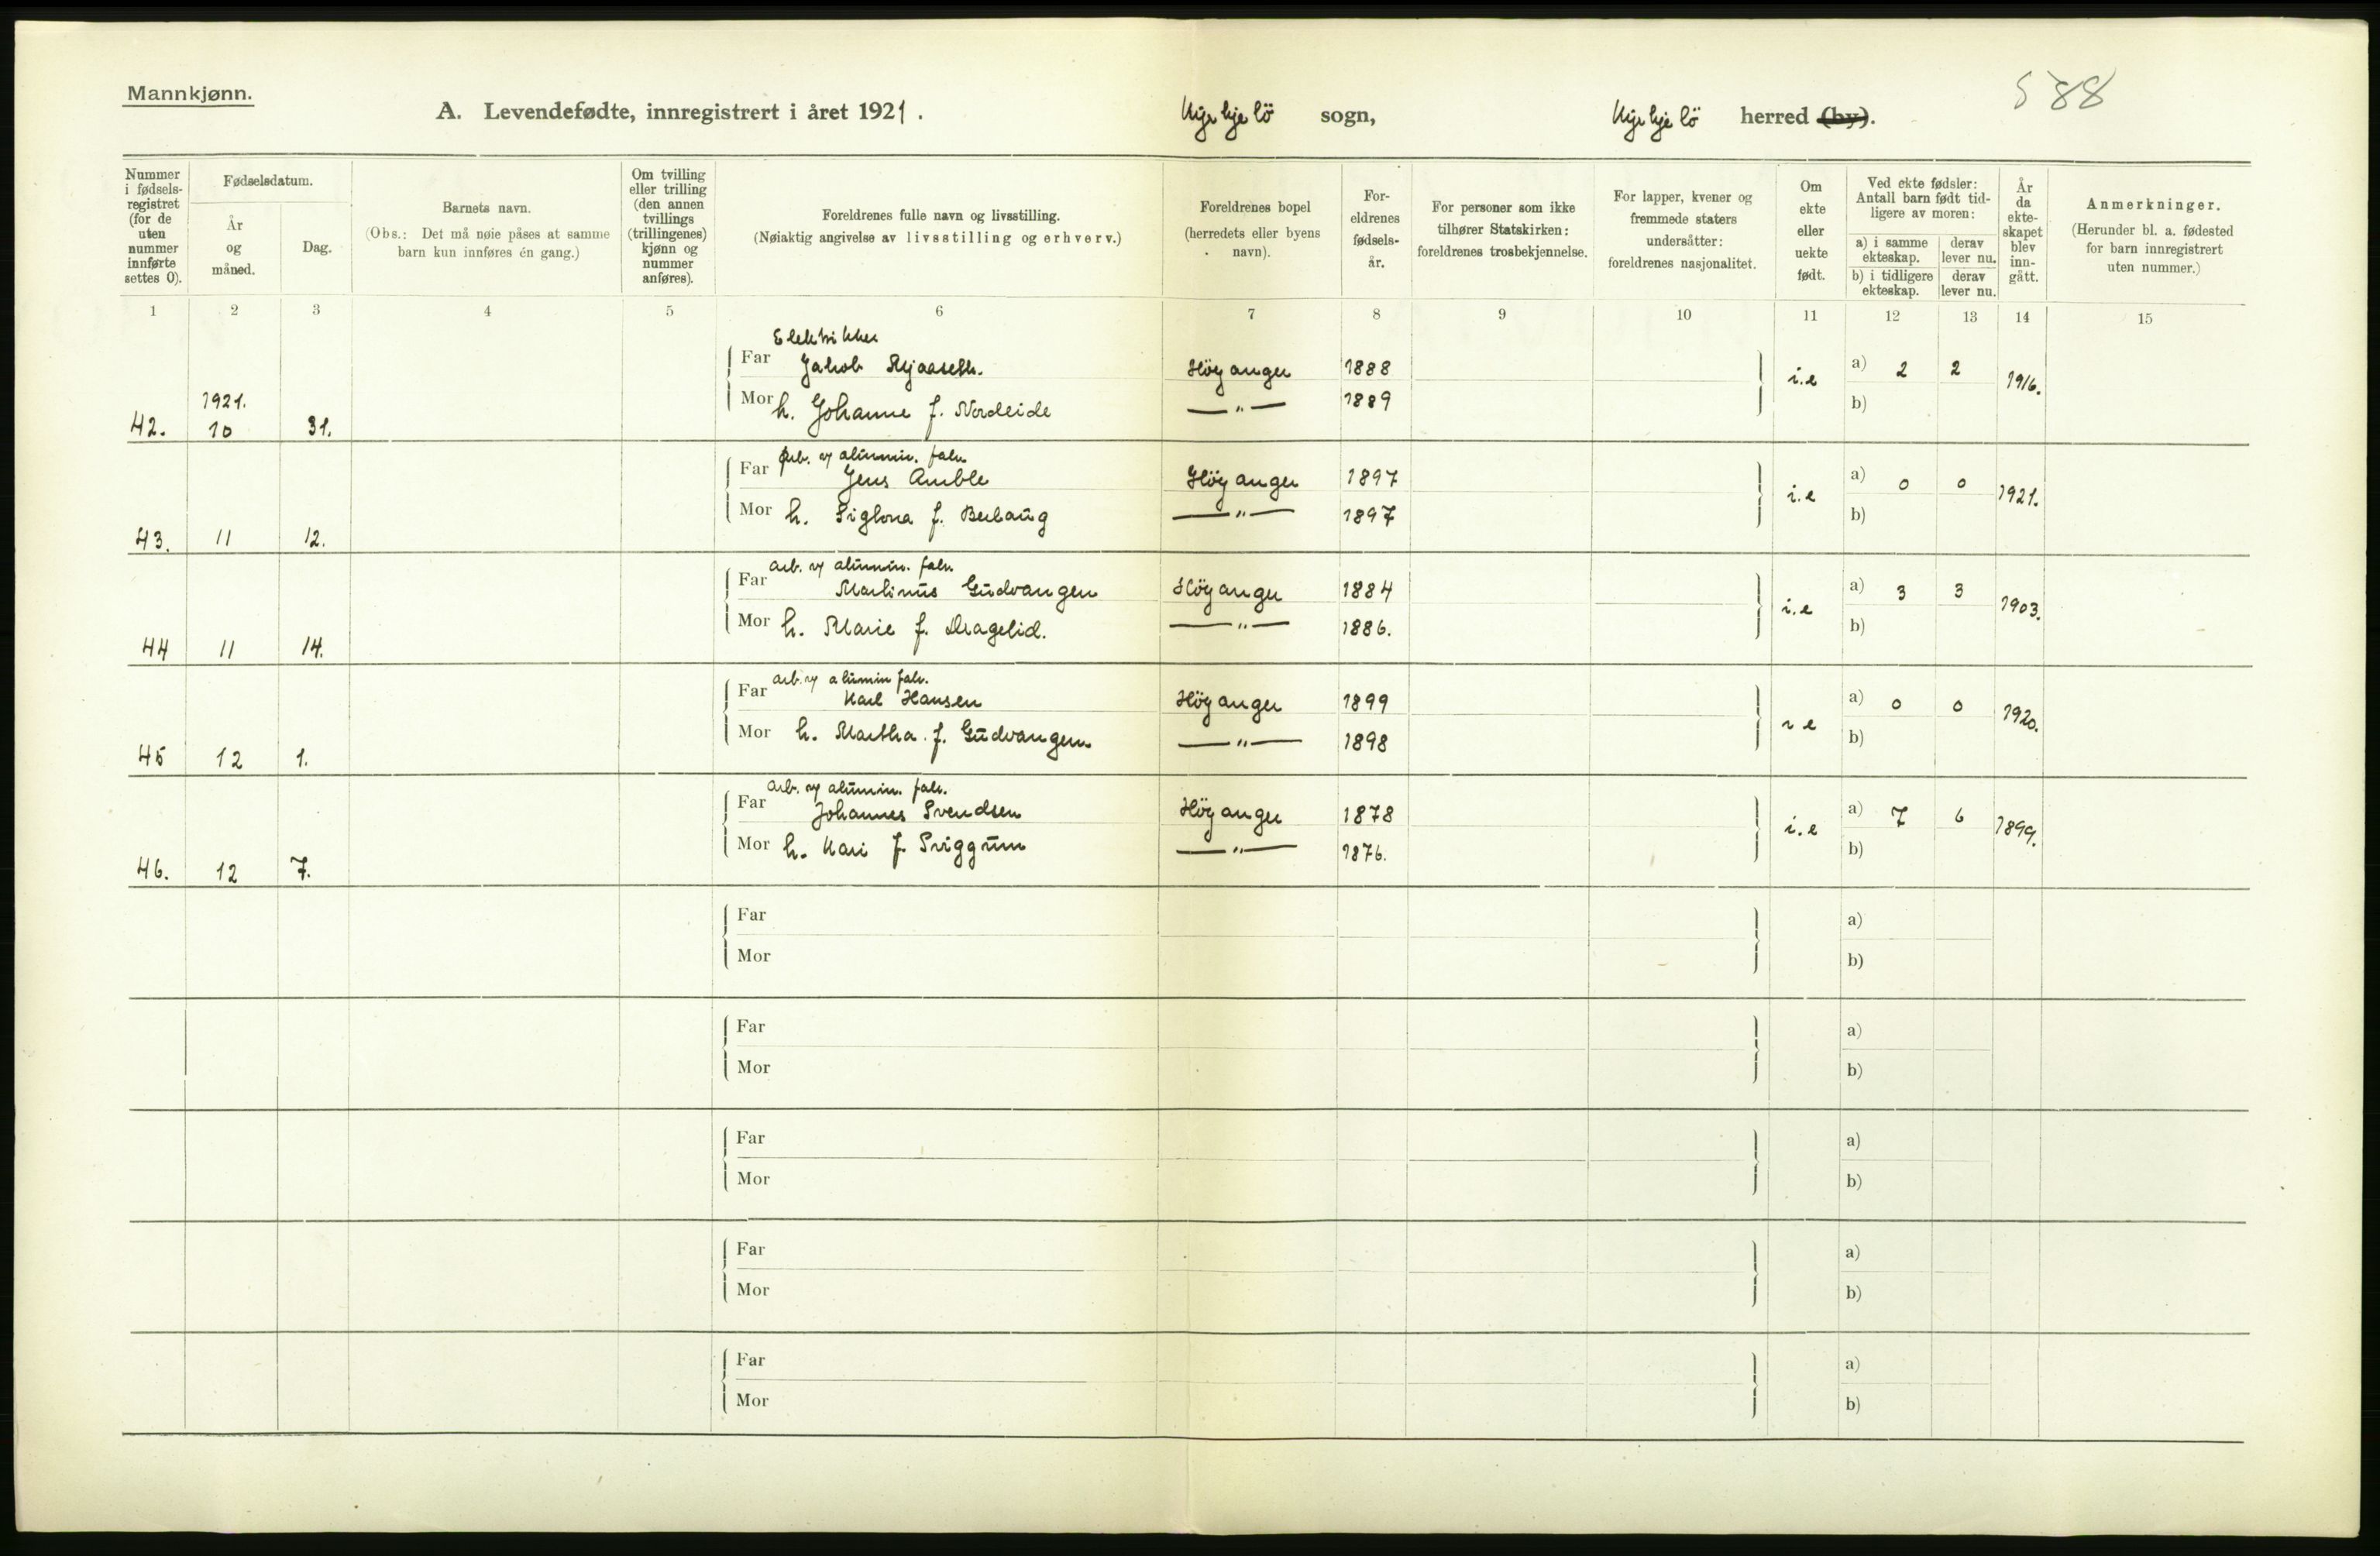 Mannkjønn.
588
A. Levendefødte, innregistrert i året 1921. Kyrkjebö sogn, Kyrkjebö herred (by).
Nummer i fødsels-registret (for de uten nummer innførte settes 0).
Fødselsdatum.
År og måned.
Dag.
Barnets navn.
(Obs.: Det må nøie påses at samme barn kun innføres én gang.)
Om tvilling eller trilling (den annen tvillings (trillingenes) kjønn og nummer anføres).
Foreldrenes fulle navn og livsstilling.
(Nøiaktig angivelse av livsstilling og erhverv.)
Foreldrenes bopel (herredets eller byens navn).
For-eldrenes fødsels-år.
For personer som ikke tilhører Statskirken: foreldrenes trosbekjennelse.
For lapper, kvener og fremmede staters undersåtter: foreldrenes nasjonalitet.
Om ekte eller uekte født.
Ved ekte fødsler: Antall barn født tid-ligere av moren:
a) i samme ekteskap. derav lever nu.
b) i tidligere ekteskap. derav lever nu.
År da ekte-skapet blev inn-gått.
Anmerkninger.
(Herunder bl. a. fødested for barn innregistrert uten nummer.)
1 2 3 4 5 6 7 8 9 10 11 12 13 14 15
Elektriker
Far Jakob Höyanger 1888 i.e a) 2 2 1916.
Mor h. Johanne f. Nordeide —"— 1889 b)
42. 1921. 10 31.
Arb. v/ alumin. fabr.
Far Jens Amble Höyanger 1897 i.e a) 0 0 1921.
Mor h. f. —"— 1897 b)
43. 11 12.
Arb. v/ alumin. fabr.
Far Martinus Gudvangen Höyanger 1884 i.e a) 3 3 1903.
Mor h. Marie f. Dragelid. —"— 1886. b)
44 11 14.
Arb. v/ alumin fabr.
Far Karl Hansen Höyanger 1899 i e a) 0 0 1920.
Mor h. Martha f. Gudvangen —"— 1898 b)
45 12 1.
Arb. v/ alumin. fabr.
Far Johannes Svendsen Höyanger 1878 i.e a) 7 6 1899.
Mor h. Kari f. Sviggum —"— 1876. b)
46. 12 7.
Far a)
Mor b)
Far a)
Mor b)
Far a)
Mor b)
Far a)
Mor b)
Far a)
Mor b)